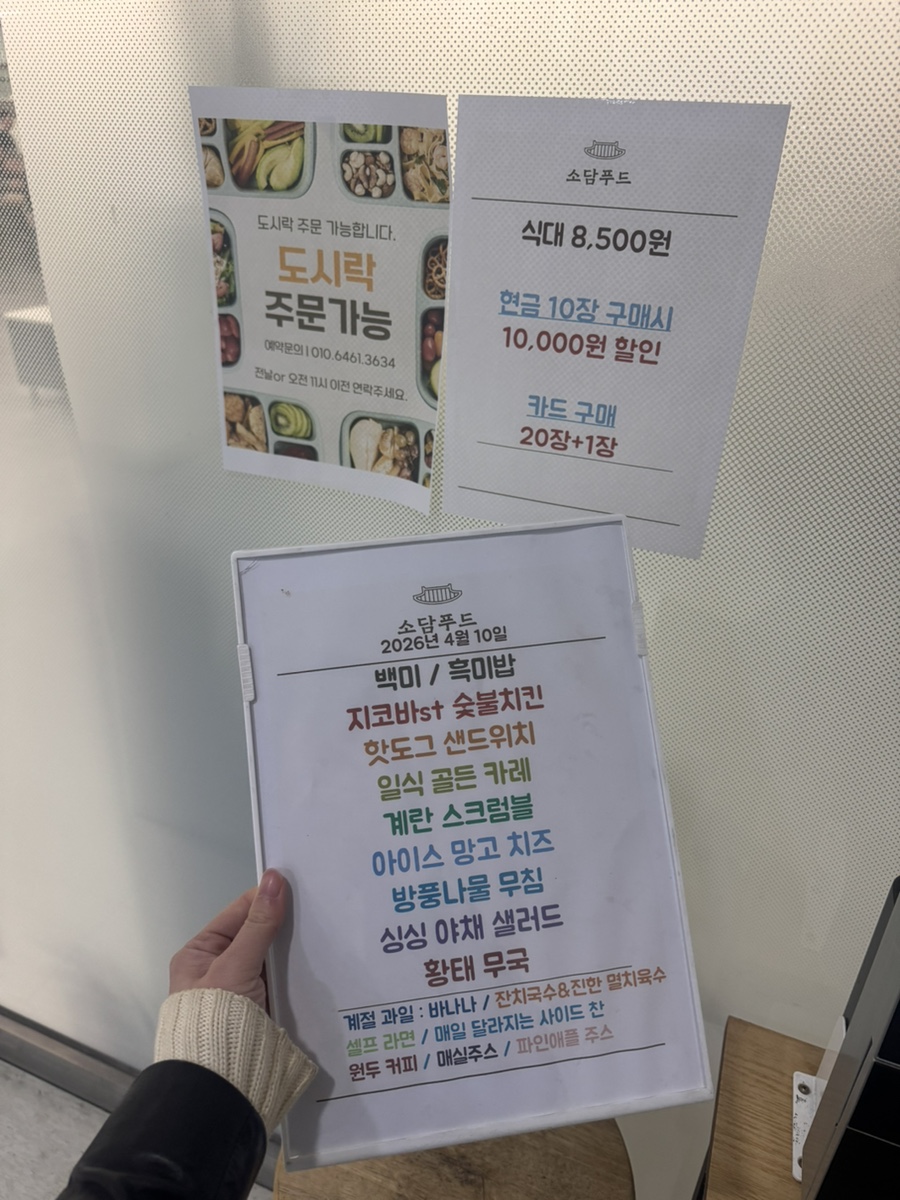 도시락 주문 가능합니다.
도시락
주문가능
예약문의 | 010.6461.3634
전날or 오전 11시 이전 연락주세요.
소담푸드
식대 8,500원
현금 10장 구매시
10,000원 할인
카드 구매
20장+1장
소담푸드
2026년 4월 10일
백미 / 흑미밥
지코바st 숯불치킨
핫도그 샌드위치
일식 골든 카레
계란 스크럼블
아이스 망고 치즈
방풍나물 무침
싱싱 야채 샐러드
황태 무국
계절 과일 : 바나나 / 잔치국수&진한 멸치육수
셀프 라면 / 매일 달라지는 사이드 찬
원두 커피 / 매실주스 / 파인애플 주스